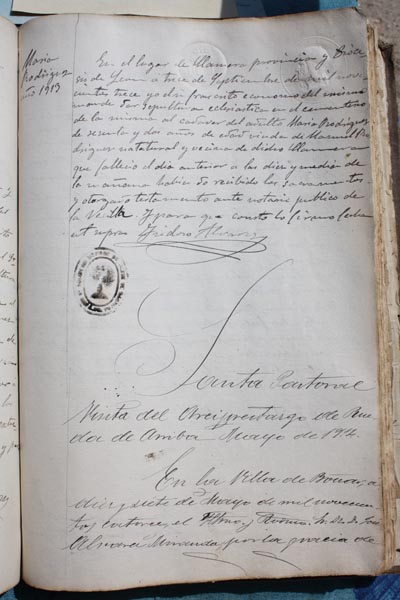 Maria
Rodriguez
año 1913
En el lugar de Llamera provincia y Dioce
sis de Leon a trece de Septiembre de mil nove
cientos trece yo el infrascrito economo del mismo
mandé dar sepultura eclesiastica en el cementerio
de la misma al cadaver del adulto Maria Rodriguez
de sesenta y dos años de edad viuda de Manuel Ro
driguez natural y vecina de dicho Llamera
que fallecio el dia anterior a las diez y media de
la mañana habiendo recibido los sacramentos
y otorgado testamento ante notario publico de
la Vecilla. Y para que conste lo firmo fecha
ut supra Isidro Alvarez
Santa Pastoral
Visita del Arciprestazgo de Rue
da de Arriba Mayo de 1914.
En la Villa de Boñar, a
diez y siete de Mayo de mil novecien
tos catorce, el Iltmo. y Rvdmo. Sr. Dr. D. José
Alvarez Miranda por la gracia de